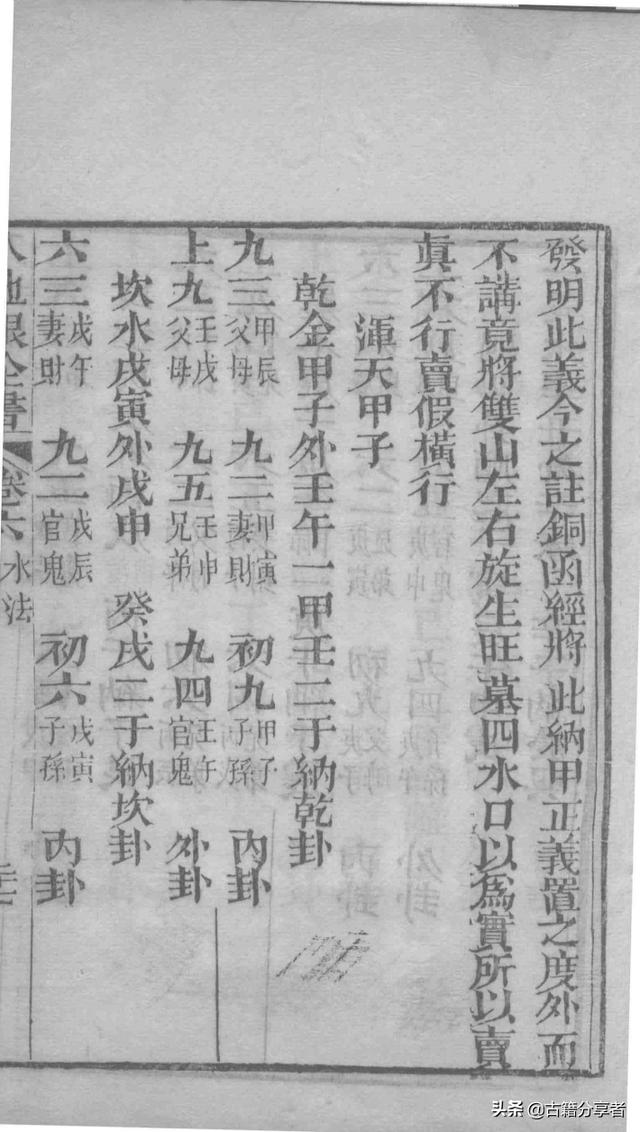 發明此義今之註銅函經將此納甲正義置之度外而
不講竟將雙山左右旋生旺墓四水口以為實所以賣
眞不行賣假橫行
渾天甲子
乾金甲子外壬午一甲壬二于納乾卦
九三 甲辰 父母 九二 甲寅 妻財 初九 甲子 子孫 內卦
上九 壬戌 父母 九五 壬申 兄弟 九四 壬午 官鬼 外卦
坎水戊寅外戊申 癸戌二于納坎卦
六三 戊午 妻財 九二 戊辰 官鬼 初六 戊寅 子孫 內卦
人地眼全書 卷六 水法
头条 @古籍分享者